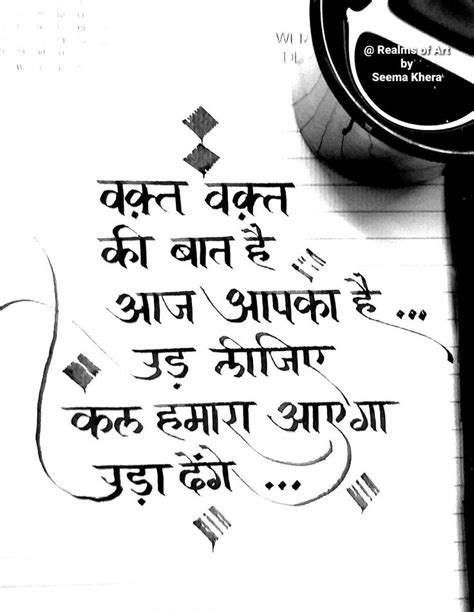 @ Realms of Art
by
Seema Khera
वक़्त वक़्त
की बात है
आज आपका है ...
उड़ लीजिए
कल हमारा आएगा
उड़ा देंगे ...